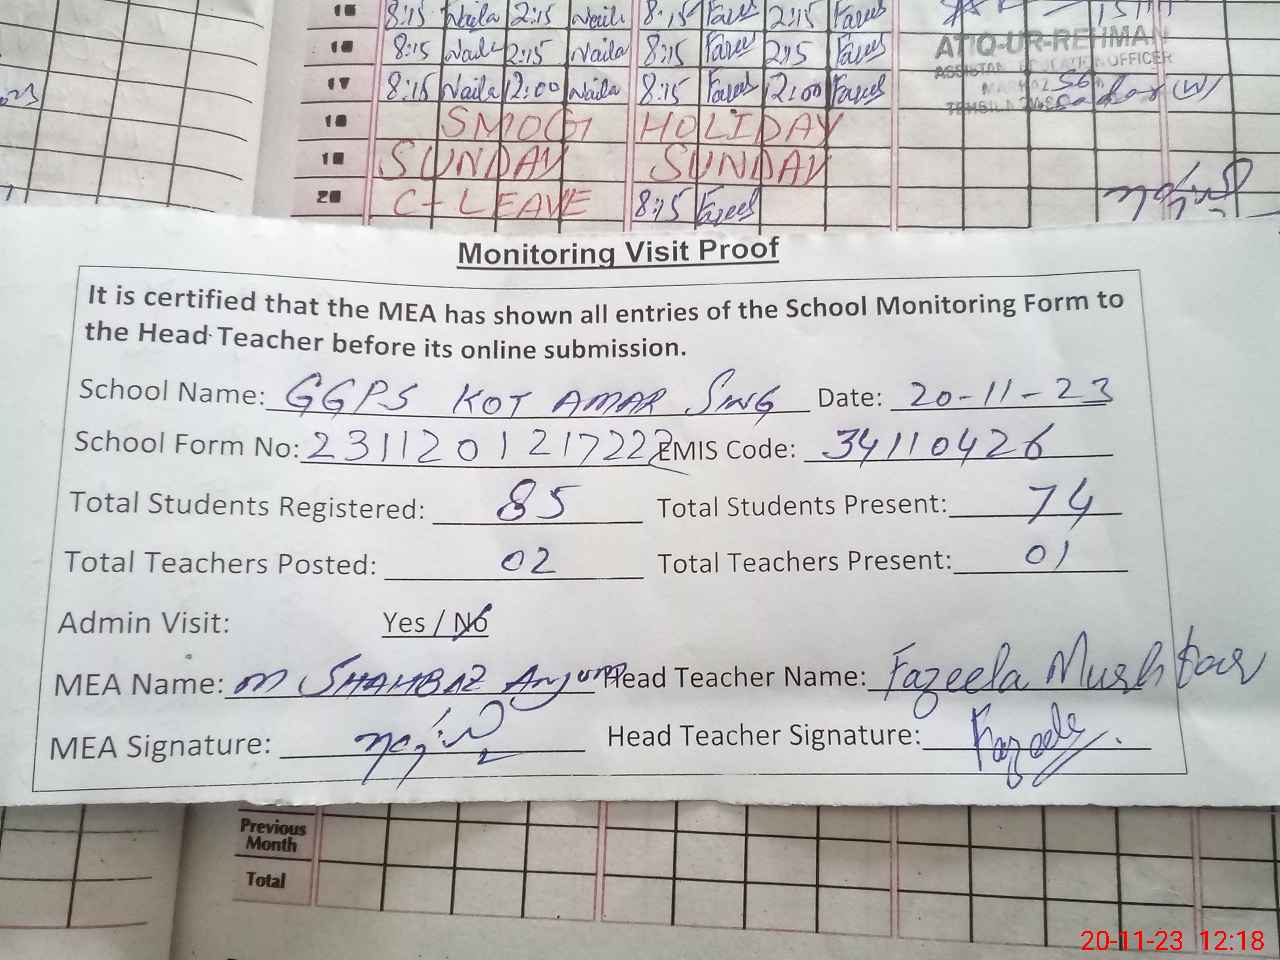 15 8:15 Naila 2:15 Naila 8:15 2:15
16 8:15 Naila 2:15 Naila 8:15 2:15
17 8:15 Naila 12:00 Naila 8:15 12:00
ATIQ-UR-REHMAN
ASSISTANT EDUCATION OFFICER
(W)
18 SMOG HOLIDAY
19 SUNDAY SUNDAY
20 C-LEAVE 8:15
Monitoring Visit Proof
It is certified that the MEA has shown all entries of the School Monitoring Form to
the Head Teacher before its online submission.
School Name: GGPS KOT AMAR SING Date: 20-11-23
School Form No: 2311201217222 EMIS Code: 34110426
Total Students Registered: 85 Total Students Present: 74
Total Teachers Posted: 02 Total Teachers Present: 01
Admin Visit: Yes / No
MEA Name: M SHAHBAZ Anjum Head Teacher Name: Fazeela Mushtaq
MEA Signature: Head Teacher Signature: Fazeela
Previous
Month
Total
20-11-23 12:18